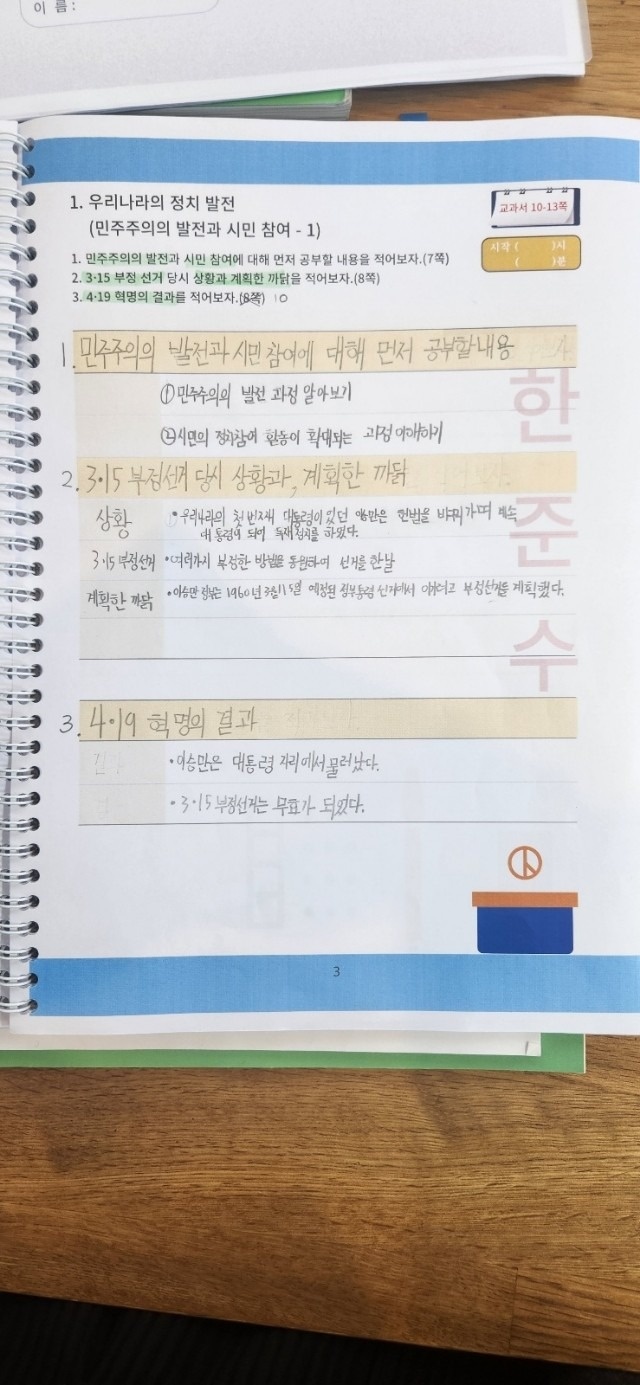 이 름 :
1. 우리나라의 정치 발전
(민주주의의 발전과 시민 참여 - 1)
교과서 10-13쪽
시작 ( )시
( )분
1. 민주주의의 발전과 시민 참여에 대해 먼저 공부할 내용을 적어보자.(7쪽)
2. 3·15 부정 선거 당시 상황과 계획한 까닭을 적어보자.(8쪽)
3. 4·19 혁명의 결과를 적어보자.(8쪽) 10
1. 민주주의의 발전과 시민 참여에 대해 먼저 공부할 내용
① 민주주의의 발전 과정 알아보기
② 시민의 정치참여 활동이 확대되는 과정 이해하기
2. 3·15 부정선거 당시 상황과, 계획한 까닭
상황 • 우리나라의 첫 번째 대통령이 있던 은 헌법을 바꿔가며 계속
대통령이 되어 독재정치를 하였다.
3·15 부정선거 • 여러가지 부정한 방법을 동원하여 선거를 한날
계획한 까닭 • 이승만 정부는 1960년 3월 15일 예정된 정부통령 선거에서 이기려고 부정선거를 계획했다.
3. 4·19 혁명의 결과
• 이승만은 대통령 자리에서 물러났다.
• 3·15 부정선거는 무효가 되었다.
한
준
수
3